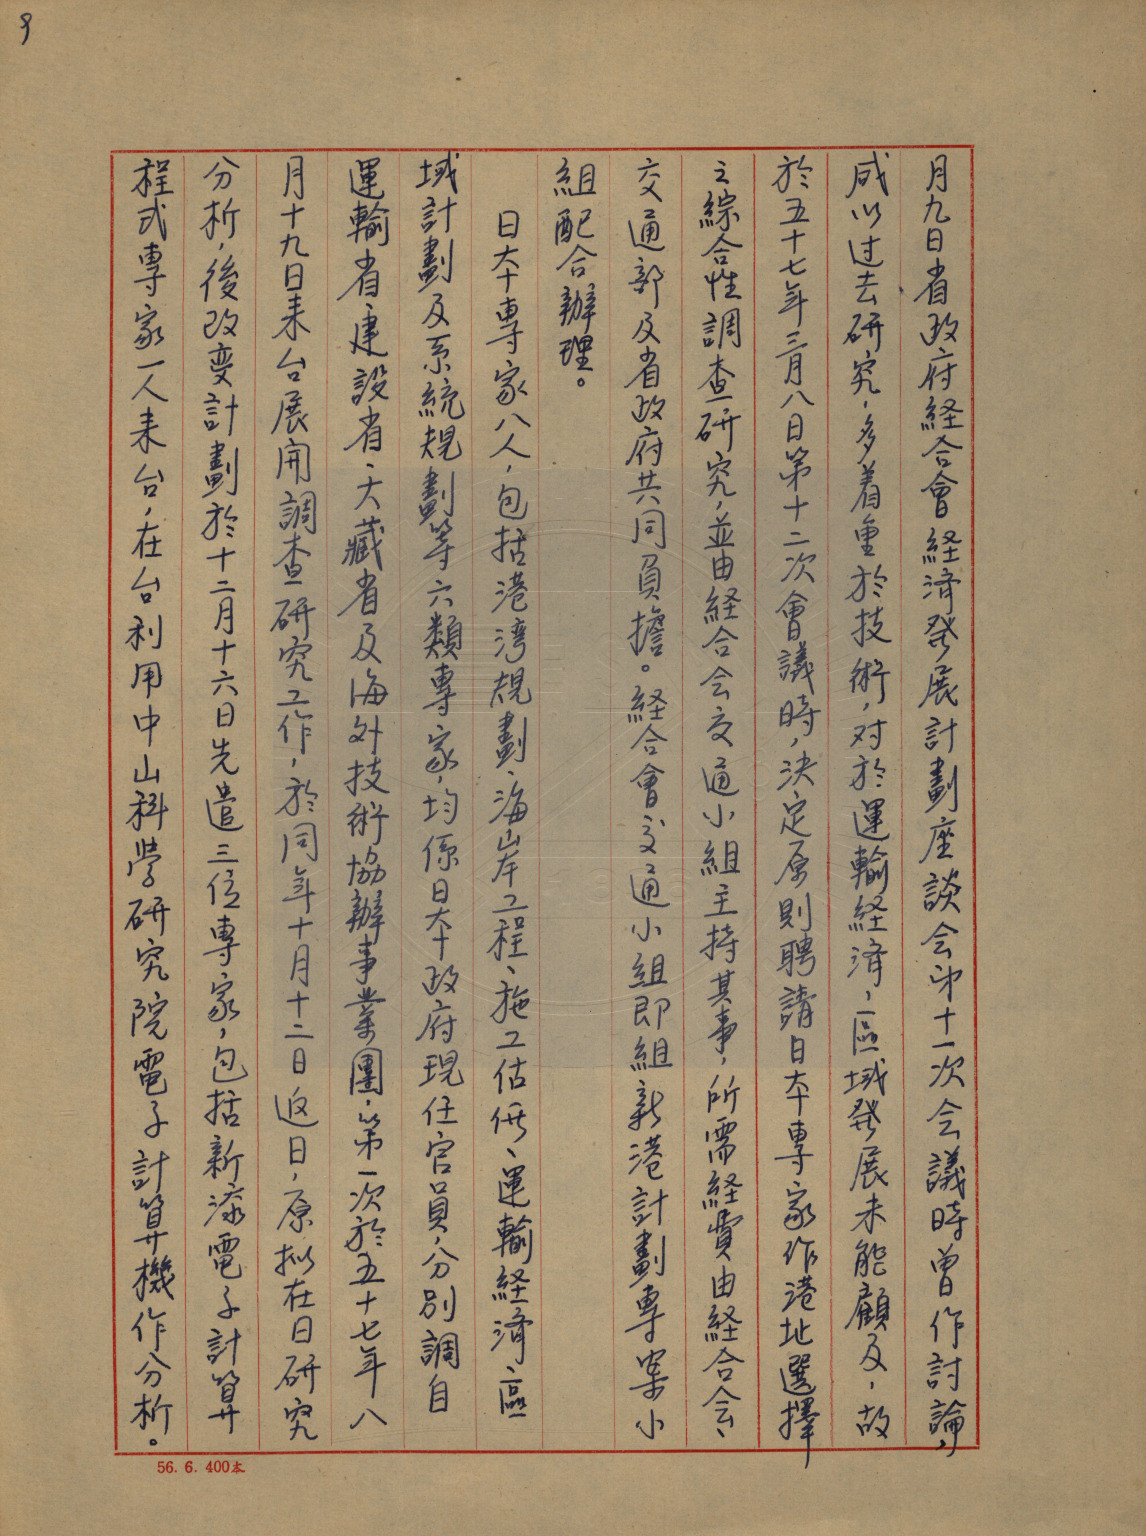 9
月九日省政府経合會経済発展計劃座談会第十一次会議時曾作討論，
咸以过去研究，多着重於技術，对於運輸経済，區域発展未能顧及，故
於五十七年三月八日第十二次會議時，決定原則聘請日本專家作港址選擇
之綜合性調查研究，並由経合会交通小組主持其事，所需経費由経合会、
交通部及省政府共同負擔。経合會交通小組即組新港計劃專案小
組配合辦理。
日本專家八人，包括港湾規劃、海岸工程、施工估価、運輸経済、區
域計劃及系統規劃等六類專家，均係日本政府現任官員，分別調自
運輸省、建設省、大藏省及海外技術協辦事業團，第一次於五十七年八
月十九日来台展開調查研究工作，於同年十月十二日返日，原拟在日研究
分析，後改变計劃於十二月十六日先遣三位專家，包括新添電子計算
程式專家一人来台，在台利用中山科学研究院電子計算機作分析。
56. 6. 400本